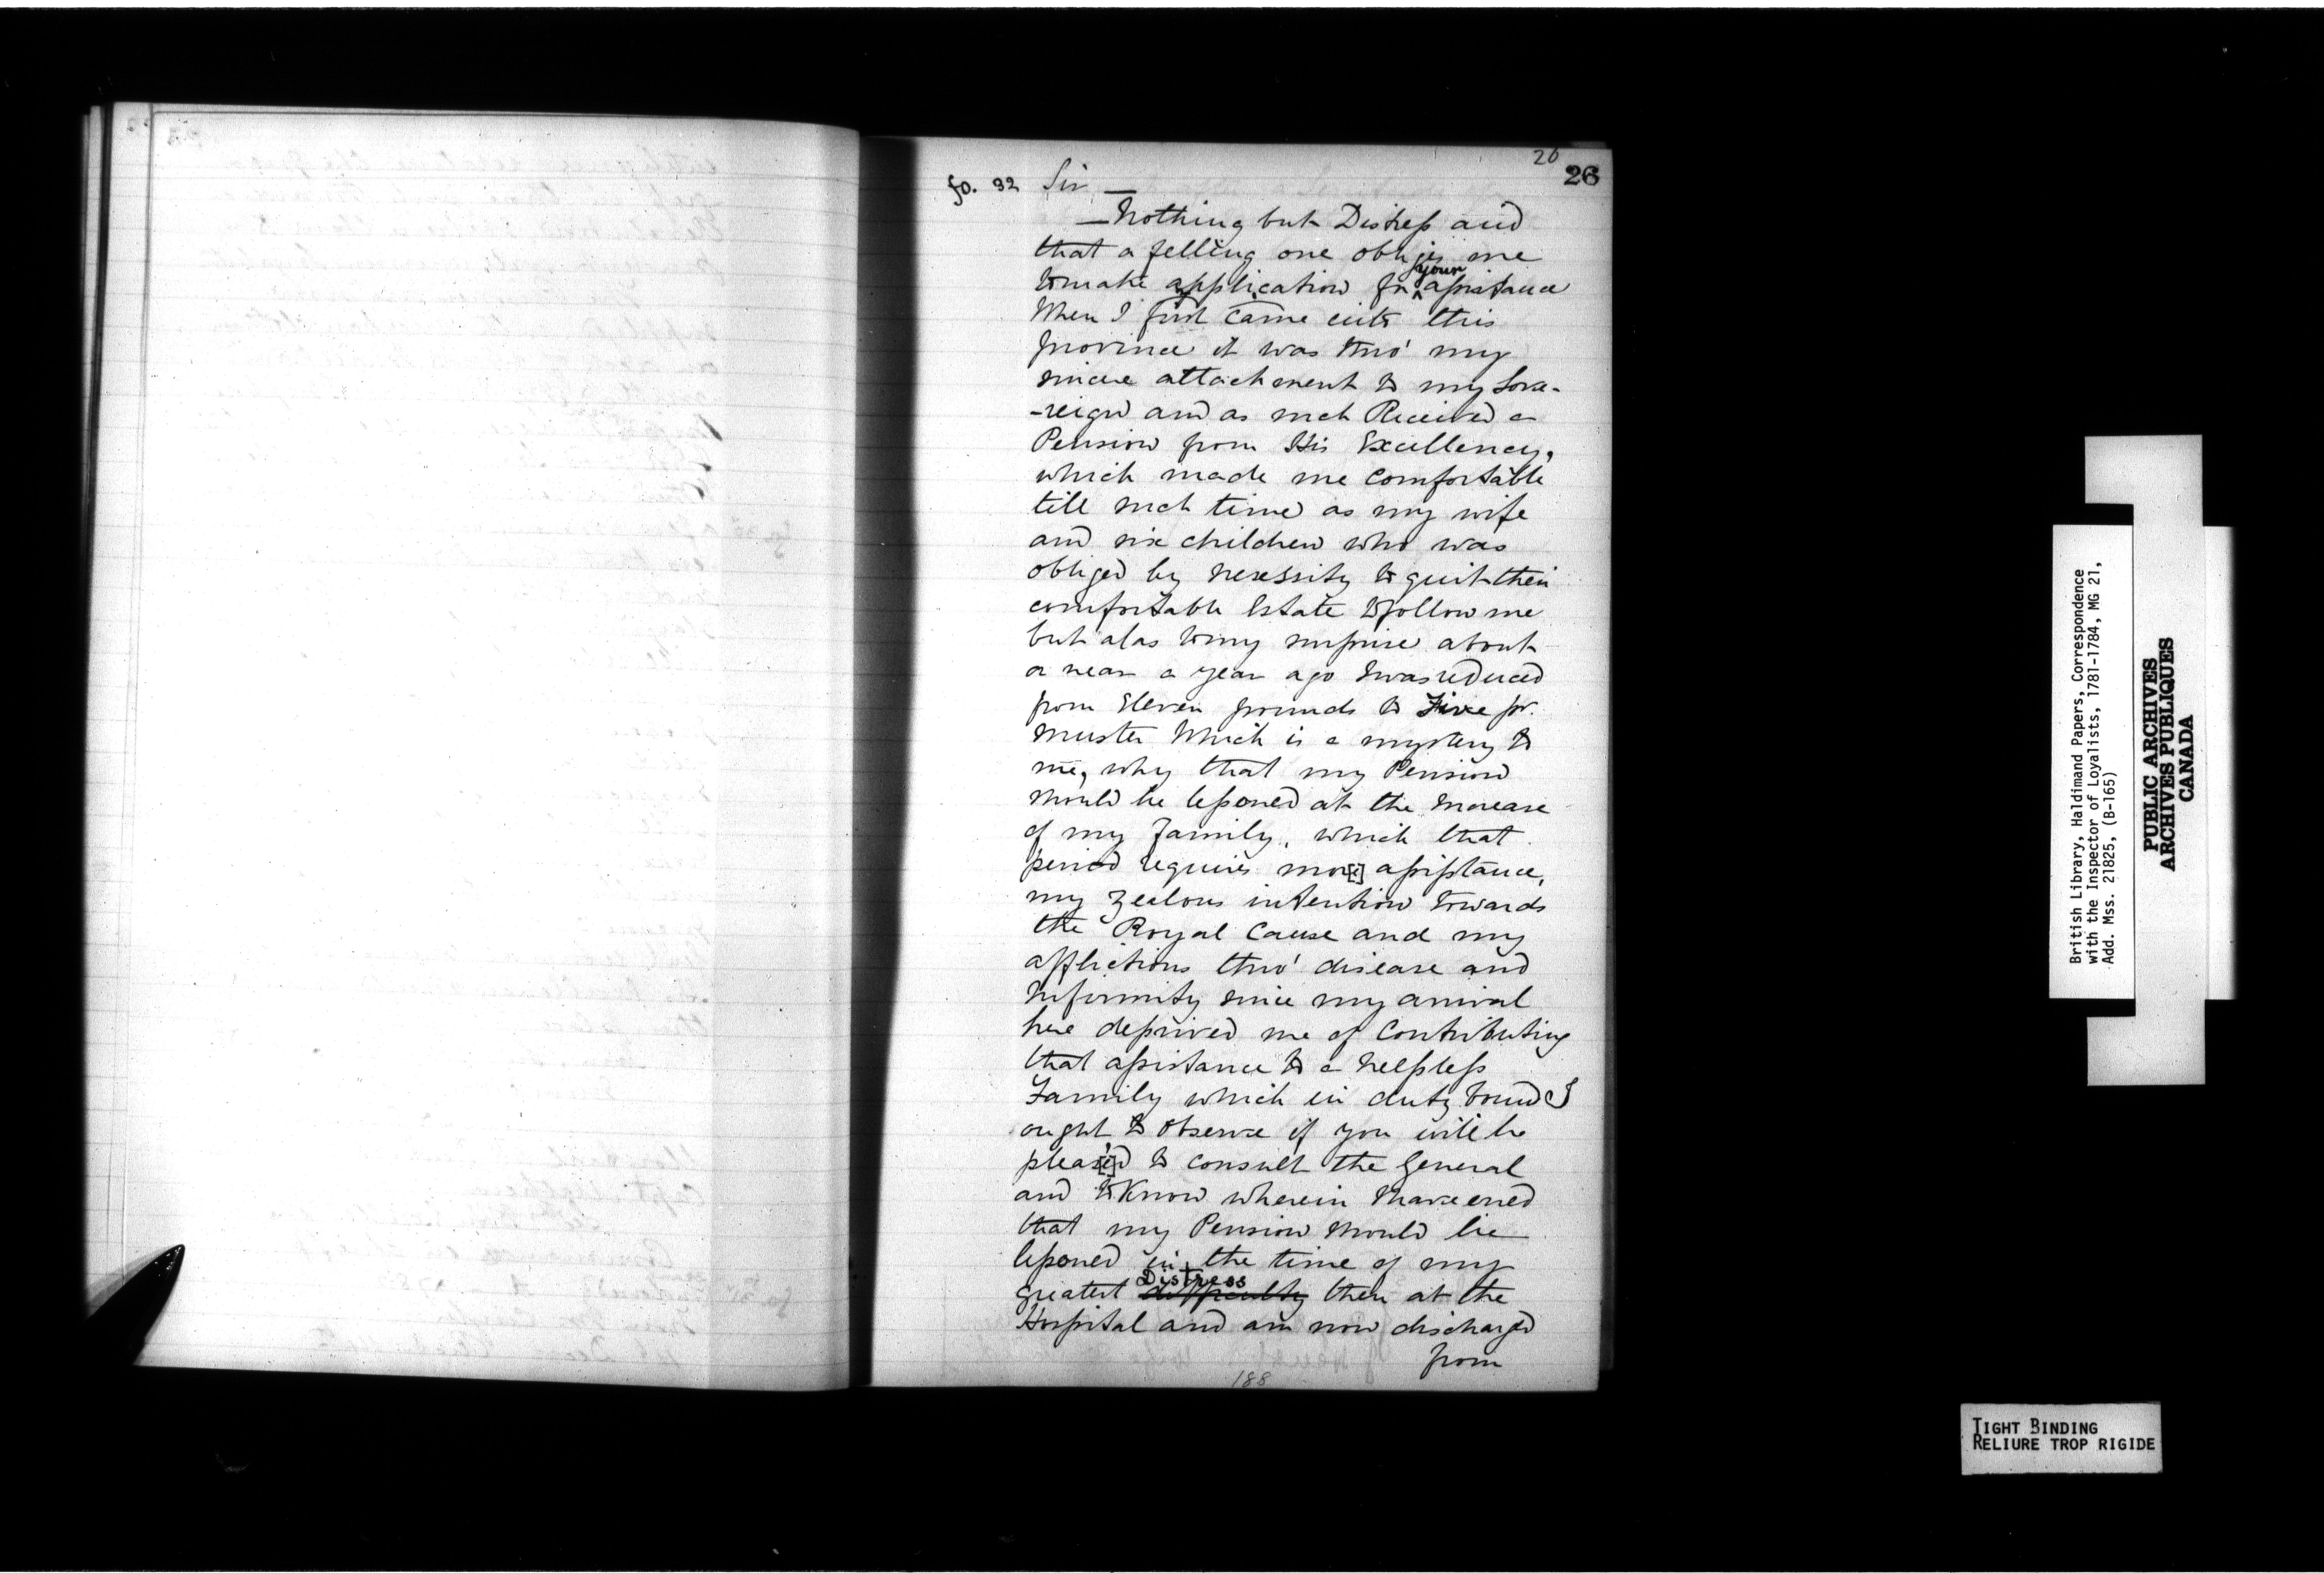 26
26
fo. 32 Sir —
— Nothing but Distress and
that a felling one obliges me
to make application for your assistance
When I first came into this
province it was thro' my
sincere attachment to my Sove-
-reign and as such Received a
Pension from His Excellency,
which made me Comfortable
till such time as my wife
and six children who was
obliged by necessity to quit their
comfortable Estate to follow me
but alas to my surprise about
or near a year ago I was reduced
from Eleven pounds to Five pr.
Muster Which is a mystery to
me, why that my Pension
should be lessoned at the Increase
of my Family, which that
period requires more[e] assistance,
my Zealous intention towards
the Royal Cause and my
afflictions thro' disease and
Infirmity since my arrival
here deprived me of Contributing
that assistance to a helpless
Family which in duty bound I
ought to observe if you will be
pleas[e]d to consult the General
and to Know wherein I have erred
that my Pension should be
lessoned in the time of my
greatest difficulty Distress then at the
Hospital and am now discharged
from
188
British Library, Haldimand Papers, Correspondence
with the Inspector of Loyalists, 1781-1784, MG 21,
Add. Mss. 21825, (B-165)
PUBLIC ARCHIVES
ARCHIVES PUBLIQUES
CANADA
TIGHT BINDING
RELIURE TROP RIGIDE